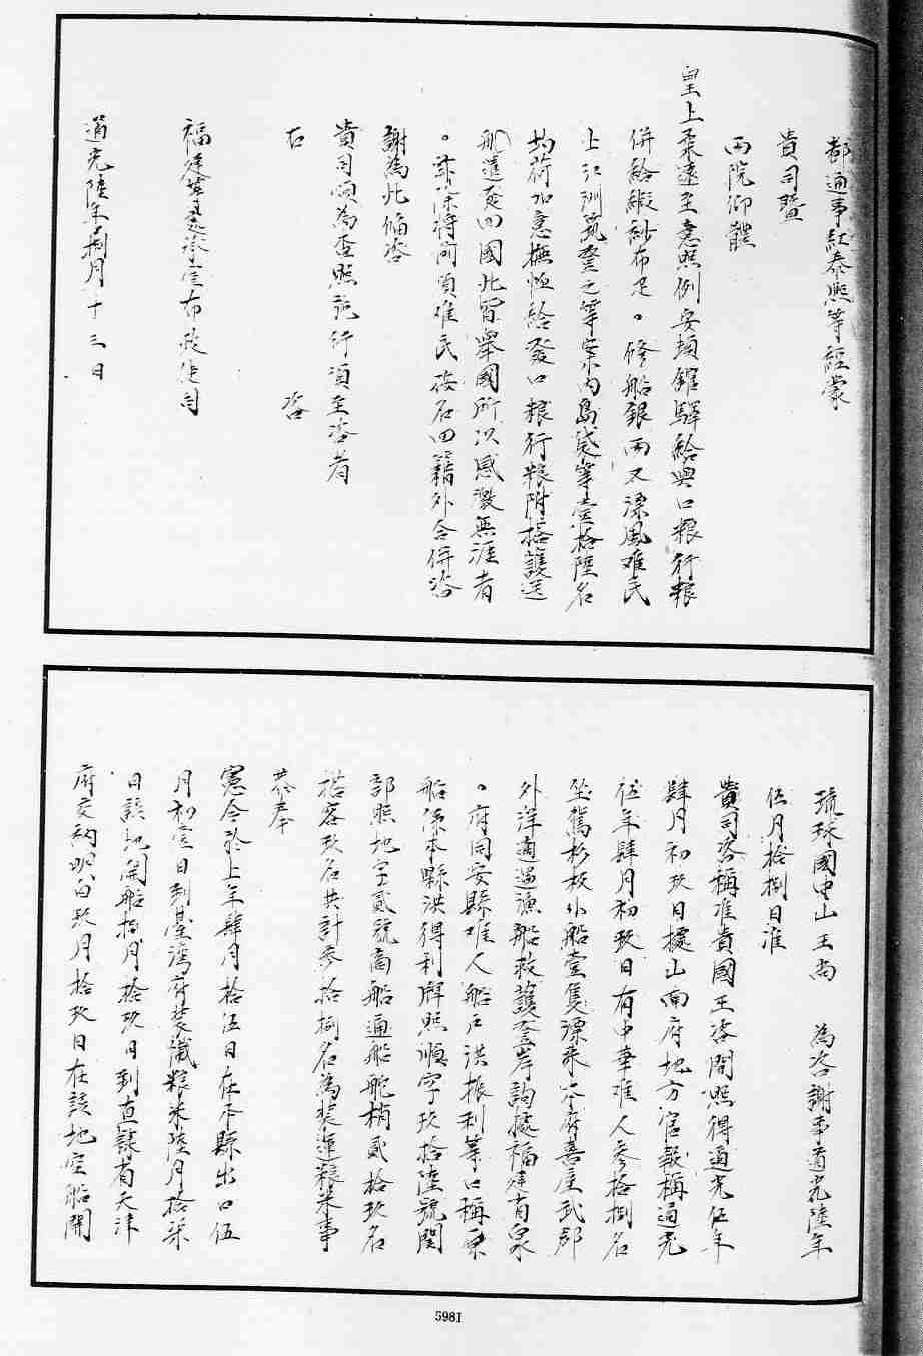 都通事紅泰熙等經蒙
貴司暨
兩院仰體
皇上柔遠至意照例安頓館驛給與口粮行粮
併給緞紗布疋。修船銀兩又漂風难民
上江洲筑登之等案內島袋等壹拾陸名
均荷加意撫恤給發口粮行粮附搭護送
船隻囬國此實舉國所以感激無涯者
。除將前項难民安右囬籍外合併咨
謝為此備咨
貴司煩為查照施行須至咨者
右 咨
福建等處承宣布政使司
道光陸年捌月十三日
琉球國中山王尚 為咨謝事道光陸年
伍月拾捌日准
貴司咨稱准貴國王咨開照得道光伍年
肆月初玖日據山南府地方官報稱道光
伍年肆月初玖日有中華难人參拾捌名
坐駕杉板小船壹隻漂来本府喜屋武郡
外洋適遇漁船救護登岸詢據福建省泉
。府同安縣难人船戶洪振利等口稱原
船係本縣洪得利牌照順字玖拾陸號関
部照地字貳號商船通船舵梢貳拾玖名
搭客玖名共計參拾捌名為裝運粮米事
恭奉
憲令於上年肆月拾伍日在本縣出口伍
月初壹日到臺湾府裝儎粮米陸月拾柒
日該地開船捌月拾玖日到直隷省天津
府交納明白玖月拾玖日在該地空船開
5981